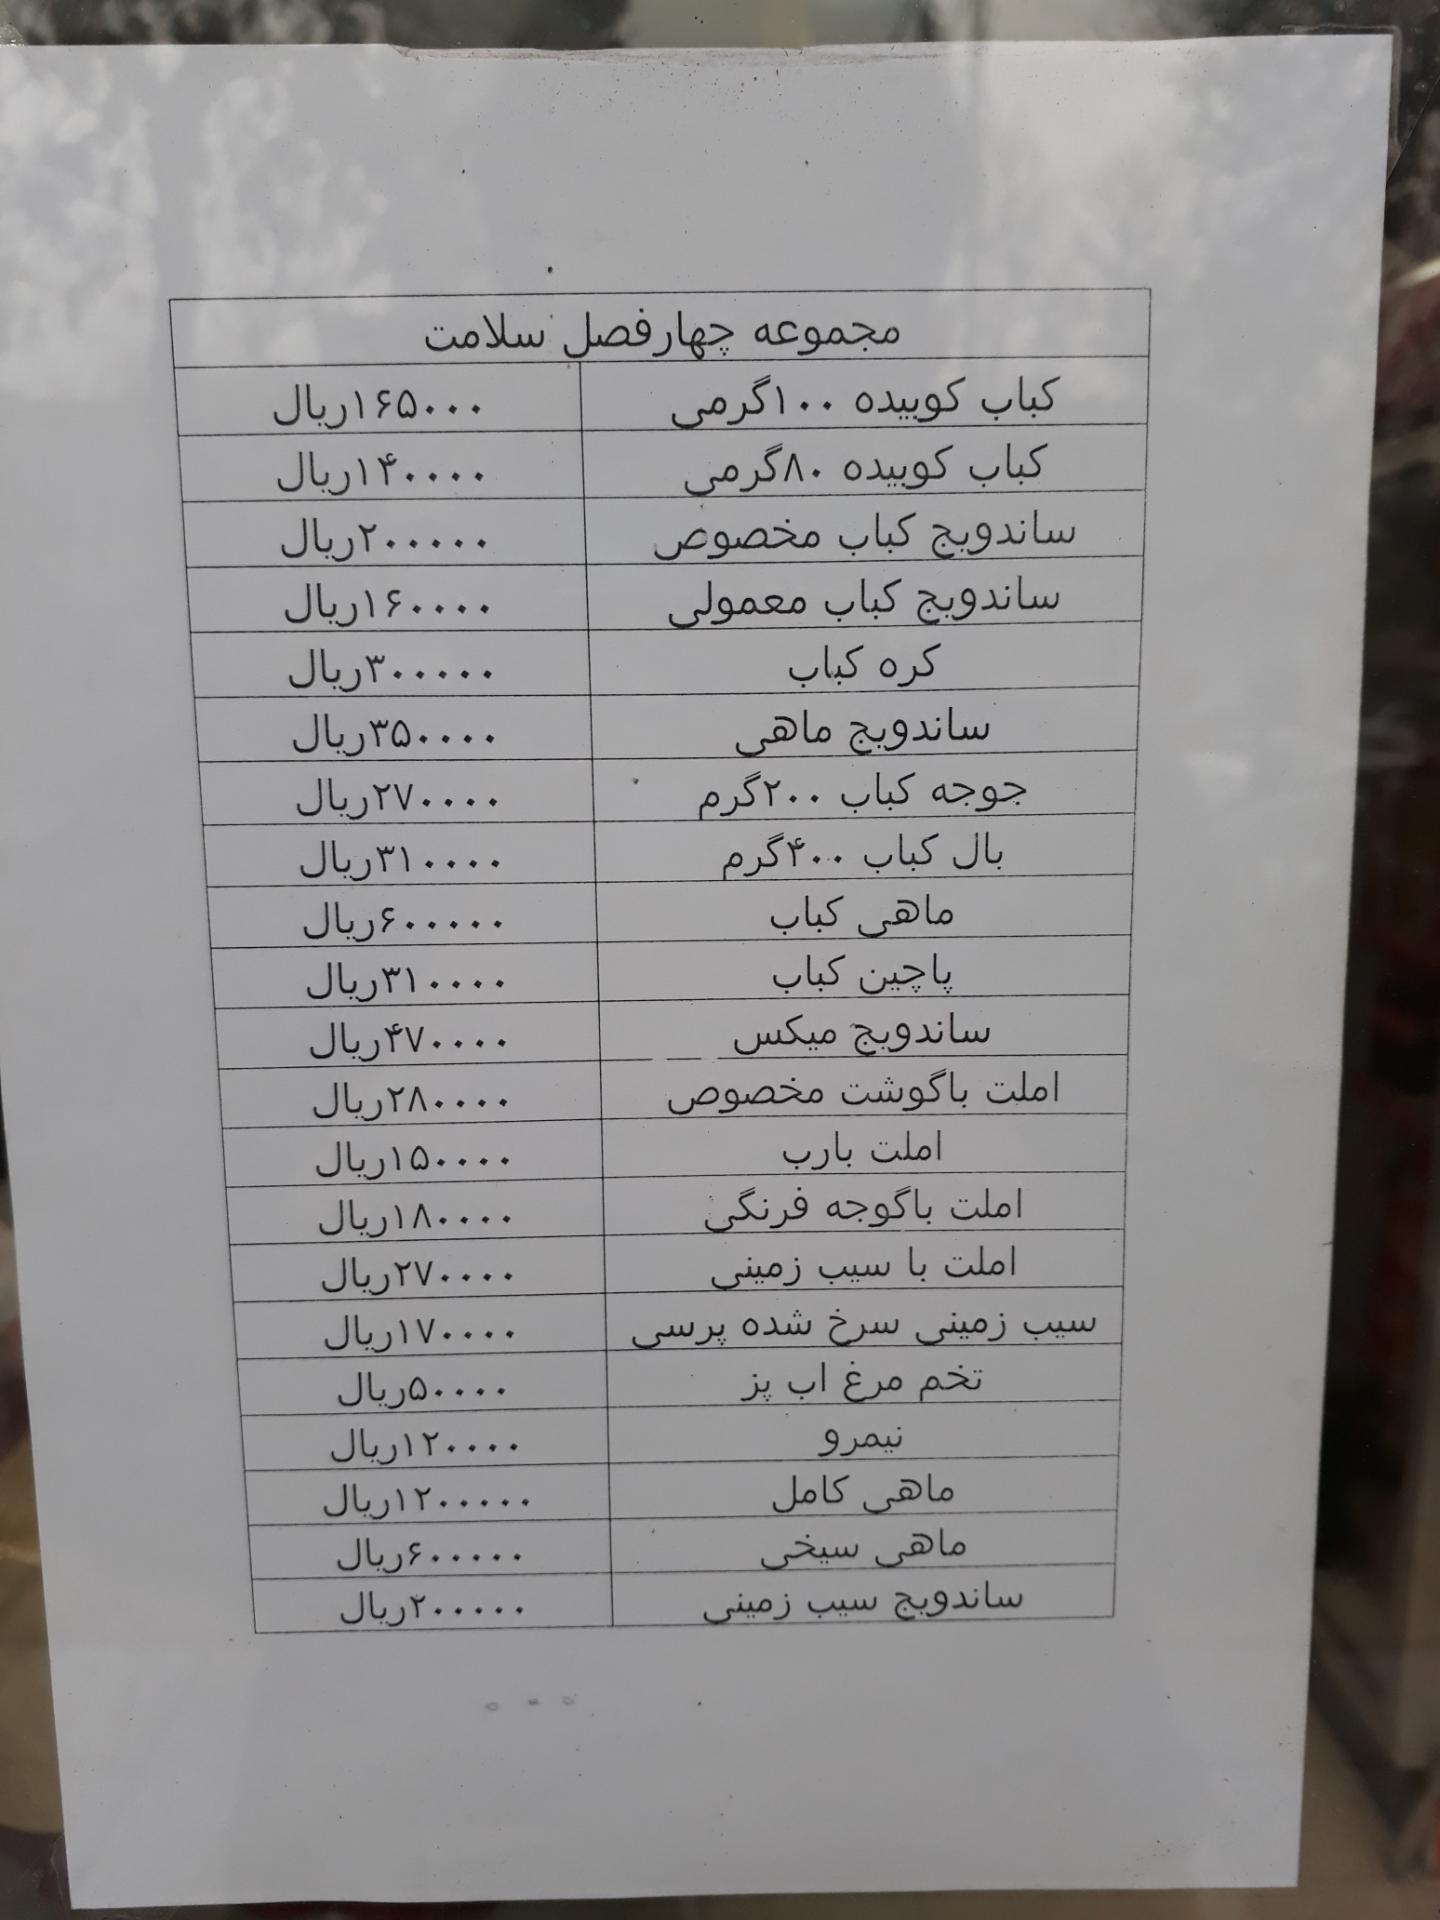 مجموعه چهارفصل سلامت
کباب کوبیده ۱۰۰گرمی ۱۶۵۰۰۰ریال
کباب کوبیده ۸۰گرمی ۱۴۰۰۰۰ریال
ساندویچ کباب مخصوص ۲۰۰۰۰۰ریال
ساندویچ کباب معمولی ۱۶۰۰۰۰ریال
کره کباب ۳۰۰۰۰۰ریال
ساندویچ ماهی ۳۵۰۰۰۰ریال
جوجه کباب ۲۰۰گرم ۲۷۰۰۰۰ریال
بال کباب ۴۰۰گرم ۳۱۰۰۰۰ریال
ماهی کباب ۶۰۰۰۰۰ریال
پاچین کباب ۳۱۰۰۰۰ریال
ساندویچ میکس ۴۷۰۰۰۰ریال
املت باگوشت مخصوص ۲۸۰۰۰۰ریال
املت بارب ۱۵۰۰۰۰ریال
املت باگوجه فرنگی ۱۸۰۰۰۰ریال
املت با سیب زمینی ۲۷۰۰۰۰ریال
سیب زمینی سرخ شده پرسی ۱۷۰۰۰۰ریال
تخم مرغ اب پز ۵۰۰۰۰ریال
نیمرو ۱۲۰۰۰۰ریال
ماهی کامل ۱۲۰۰۰۰۰ریال
ماهی سیخی ۶۰۰۰۰۰ریال
ساندویچ سیب زمینی ۲۰۰۰۰۰ریال